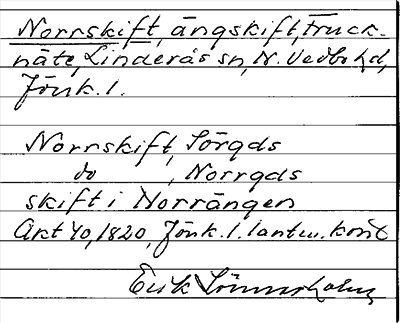 Norrskift, ängskift, Truck-
näte, Linderås sn, N. Vedbo hd,
Jönk. l.
Norrskift, Sörgds
do , Norrgds
skift i Norrängen
Akt 40, 1820, Jönk. l. lantm. kont
Erik